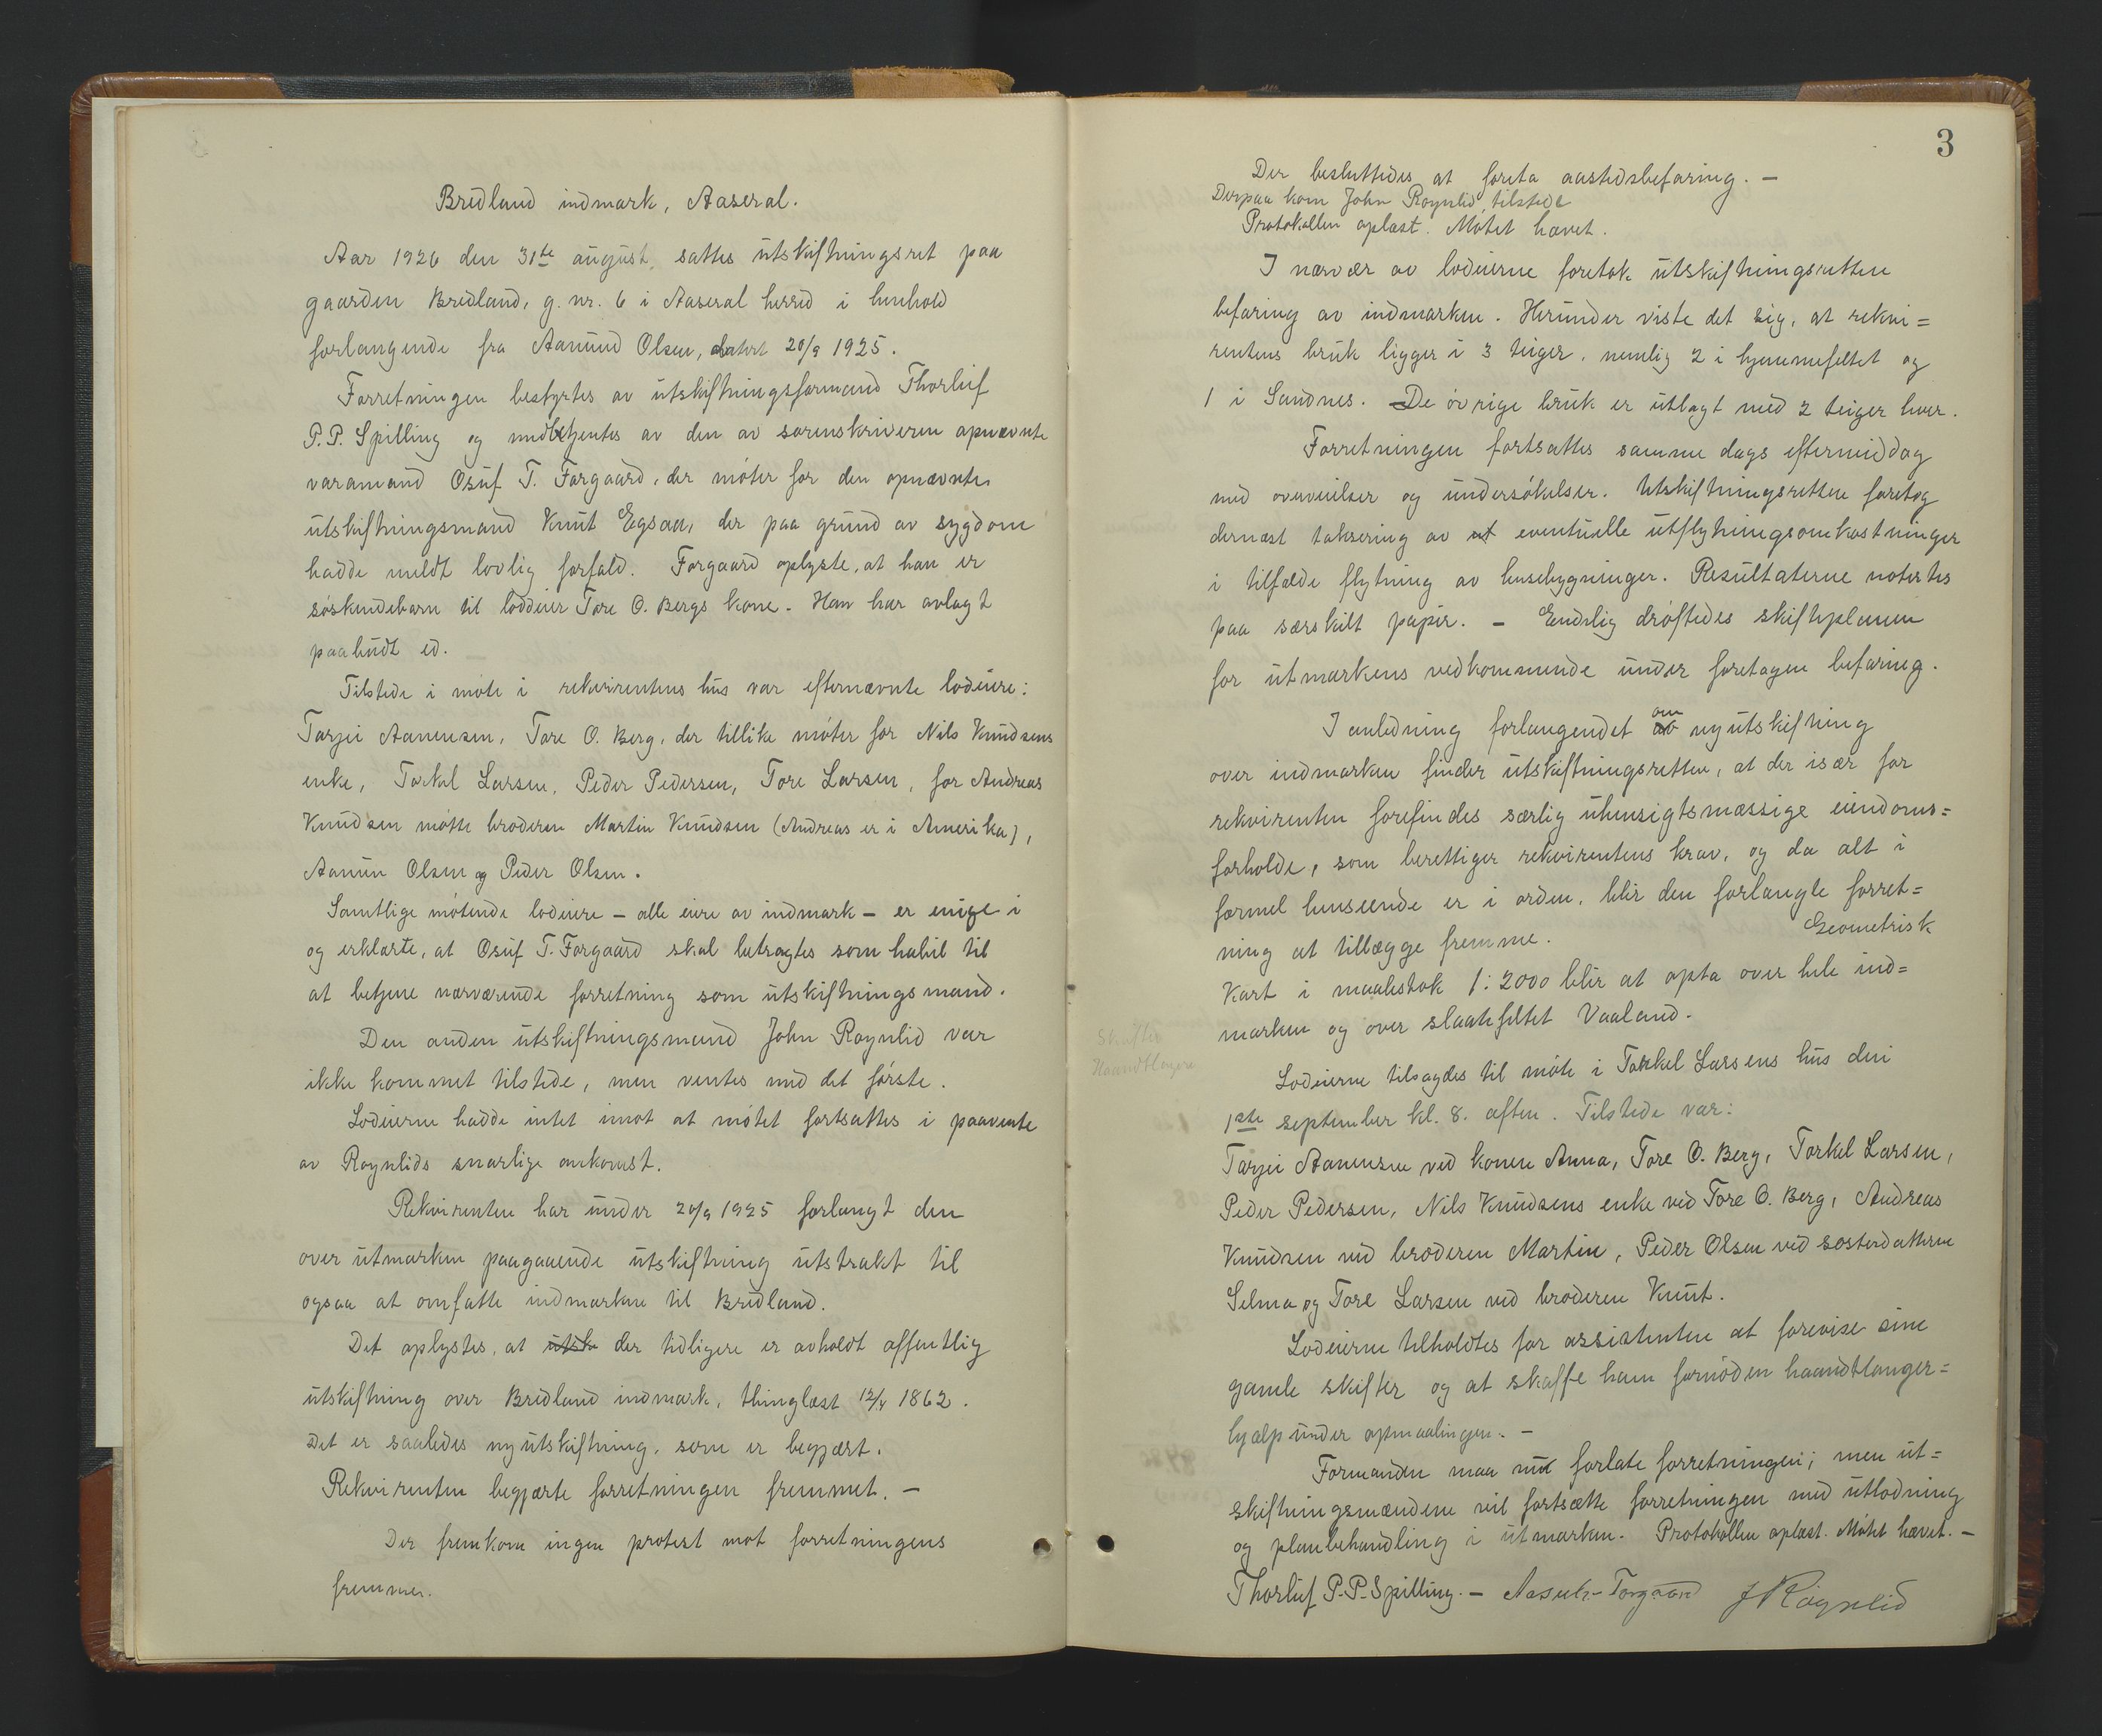 Bredland indmark, Aaseral.
Aar 1926 den 31te august, sattes utskiftningsret paa
gaarden Bredland, g. nr. 6 i Aaseral herred i henhold
forlangende fra Aanund Olsen, datert 20/9 1925.
Forretningen bestyrtes av utskiftningsformand Thorleif
P.P. Spilling og medbetjentes av den av sorenskriveren opnævnte
varamand Osuf T. Forgaard, der møter for den opnævnte
utskiftningsmand Knut Egsaa, der paa grund av sygdom
hadde meldt lovlig forfald. Forgaard oplyste, at han er
søskendebarn til loddeier Tore O. Bergs kone. Han har avlagt
paabudt ed.
Tilstede i møte i rekvirentens hus var efternævnte lodeiere:
Tarjei Aanensen, Tore O. Berg, der tillike møter for Nils Knudsens
enke, Torkel Larsen, Peder Pedersen, Tore Larsen, for Andreas
Knudsen møtte broderen Martin Knudsen (Andreas er i Amerika),
Aanun Olsen og Peder Olsen.
Samtlige møtende lodeiere – alle eiere av indmark – er enige i
og erklærte, at Osuf T. Forgaard skal betragtes som habil til
at betjene nærværende forretning som utskiftningsmand.
Den anden utskiftningsmand John Røynlid var
ikke kommet tilstede, men ventes med det første.
Lodeierne hadde intet imot at møtet fortsattes i paavente
av Røynlids snarlige ankomst.
Rekvirenten har under 20/9 1925 forlangt den
over utmarken paagaaende utskiftning utstrakt til
ogsaa at omfatte indmarken til Bredland.
Det oplystes, at utsk der tidligere er avholdt offentlig
utskiftning over Bredland indmark, thinglæst 12/4 1862.
Det er saaledes nyutskiftning, som er begjært.
Rekvirenten begjærte forretningen fremmet. –
Der fremkom ingen protest mot forretningens
fremme.
3
Der besluttedes at foreta aastedsbefaring. –
Derpaa kom John Røynlid tilstede
Protokollen oplæst. Møtet hævet.
I nærvær av lodeierne foretok utskiftningsretten
befaring av indmarken. Herunder viste det sig, at rekvi=
rentens bruk ligger i 3 teiger, nemlig 2 i hjemmefeltet og
1 i Sandnes. De øvrige bruk er utlagt med 2 teiger hver.
Forretningen fortsattes samme dags eftermiddag
med overveielser og undersøkelser. Utskiftningsretten foretog
dernæst taksering av ut eventuelle utflytningsomkostninger
i tilfælde flytning av husebygninger. Resultaterne notertes
paa særskilt papir. – Endelig drøftedes skifteplanen
for utmarkens vedkommende under foretagen befaring.
I anledning forlangendet av om nyutskiftning
over indmarken finder utskiftningsretten, at der især for
rekvirenten forefindes særlig uhensigtsmæssige eiendoms=
forholde, som berettiger rekvirentens krav, og da alt i
formel henseende er i orden, blir den forlangte forret=
ning at tillægge fremme. Geometrisk
Kart i maalestok 1:2000 blir at opta over hele ind=
marken og over slaattefeltet Vaaland.
Skifter
Haandtlangere
Lodeierne tilsagdes til møte i Torkel Larsens hus den
1ste september kl. 8. aften. Tilstede var:
Tarjei Aanensen ved konen Anna, Tore O. Berg, Torkel Larsen,
Peder Pedersen, Nils Knudsens enke ved Tore O. Berg, Andreas
Knudsen ved broderen Martin, Peder Olsen ved søsterdatteren
Selma og Tore Larsen ved broderen Knut.
Lodeierne tilholdtes for assistenten at forevise sine
gamle skifter og at skaffe ham fornøden haandtlanger=
hjælp under opmaalingen. –
Formanden maa nu forlate forretningen; men ut=
skiftningsmændene vil fortsætte forretningen med utlodning
og planbehandling i utmarken. Protokollen oplæst. Møtet hævet. –
Thorleif P.P. Spilling. – Forgaard J Røynlid